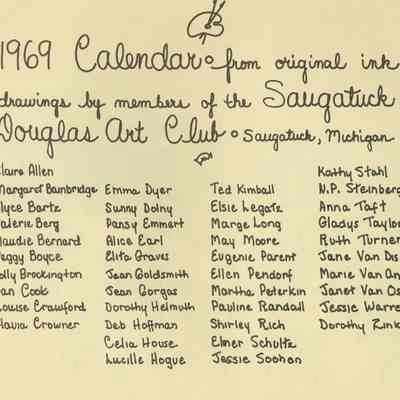 1969 Calendar from original ink
drawings by members of the Saugatuck
Douglas Art Club Saugatuck, Michigan
laire Allen
Margaret Bainbridge
lyce Bartz
alerie Berg
laudie Bernard
eggy Boyce
olly Brockington
an Cook
ouise Crawford
lavia Crowner
Emma Dyer
Sunny Dolny
Pansy Emmert
Alice Earl
Elita Graves
Jean Goldsmith
Jean Gorgas
Dorothy Helmuth
Deb Hoffman
Celia House
Lucille Hogue
Ted Kimball
Elsie Legatz
Marge Long
May Moore
Eugenie Parent
Ellen Pendorf
Martha Peterkin
Pauline Randall
Shirley Rich
Elmer Schultz
Jessie Soohan
Kathy Stahl
N.P. Steinberg
Anna Taft
Gladys Taylo
Ruth Turner
Jane Van Dis
Marie Van An
Janet Van Os
Jessie Warre
Dorothy Zink